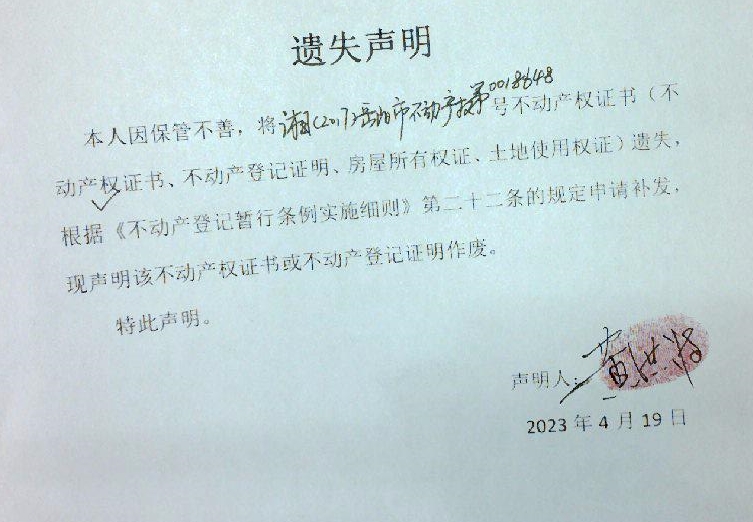 遗失声明
本人因保管不善，将湘(2017)岳阳市不动产权第0018648号不动产权证书（不
动产权证书、不动产登记证明、房屋所有权证、土地使用权证）遗失，
根据《不动产登记暂行条例实施细则》第二十二条的规定申请补发，
现声明该不动产权证书或不动产登记证明作废。
特此声明。
声明人：黄
2023年4月19日